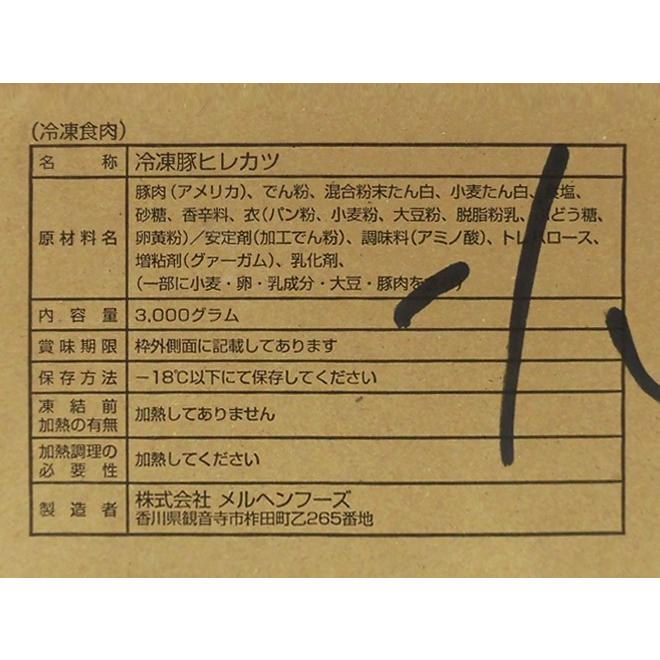 (冷凍食肉)
名称 冷凍豚ヒレカツ
原材料名 豚肉(アメリカ)、でん粉、混合粉末たん白、小麦たん白、食塩、
砂糖、香辛料、衣(パン粉、小麦粉、大豆粉、脱脂粉乳、ぶどう糖、
卵黄粉)/安定剤(加工でん粉)、調味料(アミノ酸)、トレハロース、
増粘剤(グァーガム)、乳化剤、
(一部に小麦・卵・乳成分・大豆・豚肉を含む)
内容量 3,000グラム
賞味期限 枠外側面に記載してあります
保存方法 −18℃以下にて保存してください
凍結前
加熱の有無 加熱してありません
加熱調理の
必要性 加熱してください
製造者 株式会社 メルヘンフーズ
香川県観音寺市柞田町乙265番地